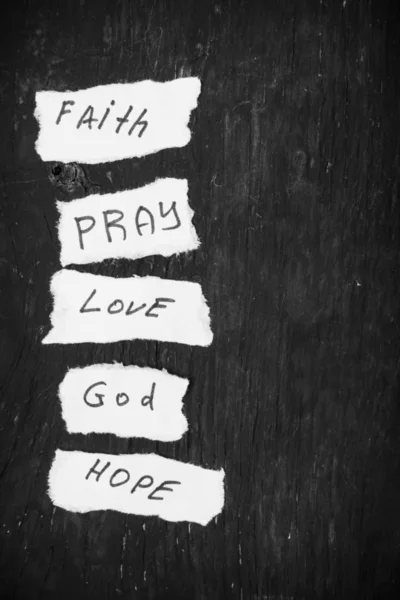 FAith
PRAY
LOVE
God
HOPE